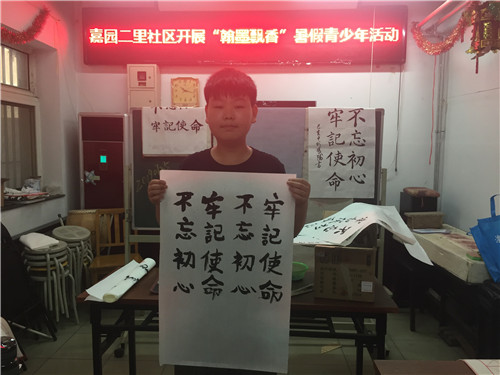 嘉园二里社区开展“翰墨飘香”暑假青少年活动
牢記使命
不忘初心
牢記使命
不忘初心
牢記使命
不忘初心
牢記使命